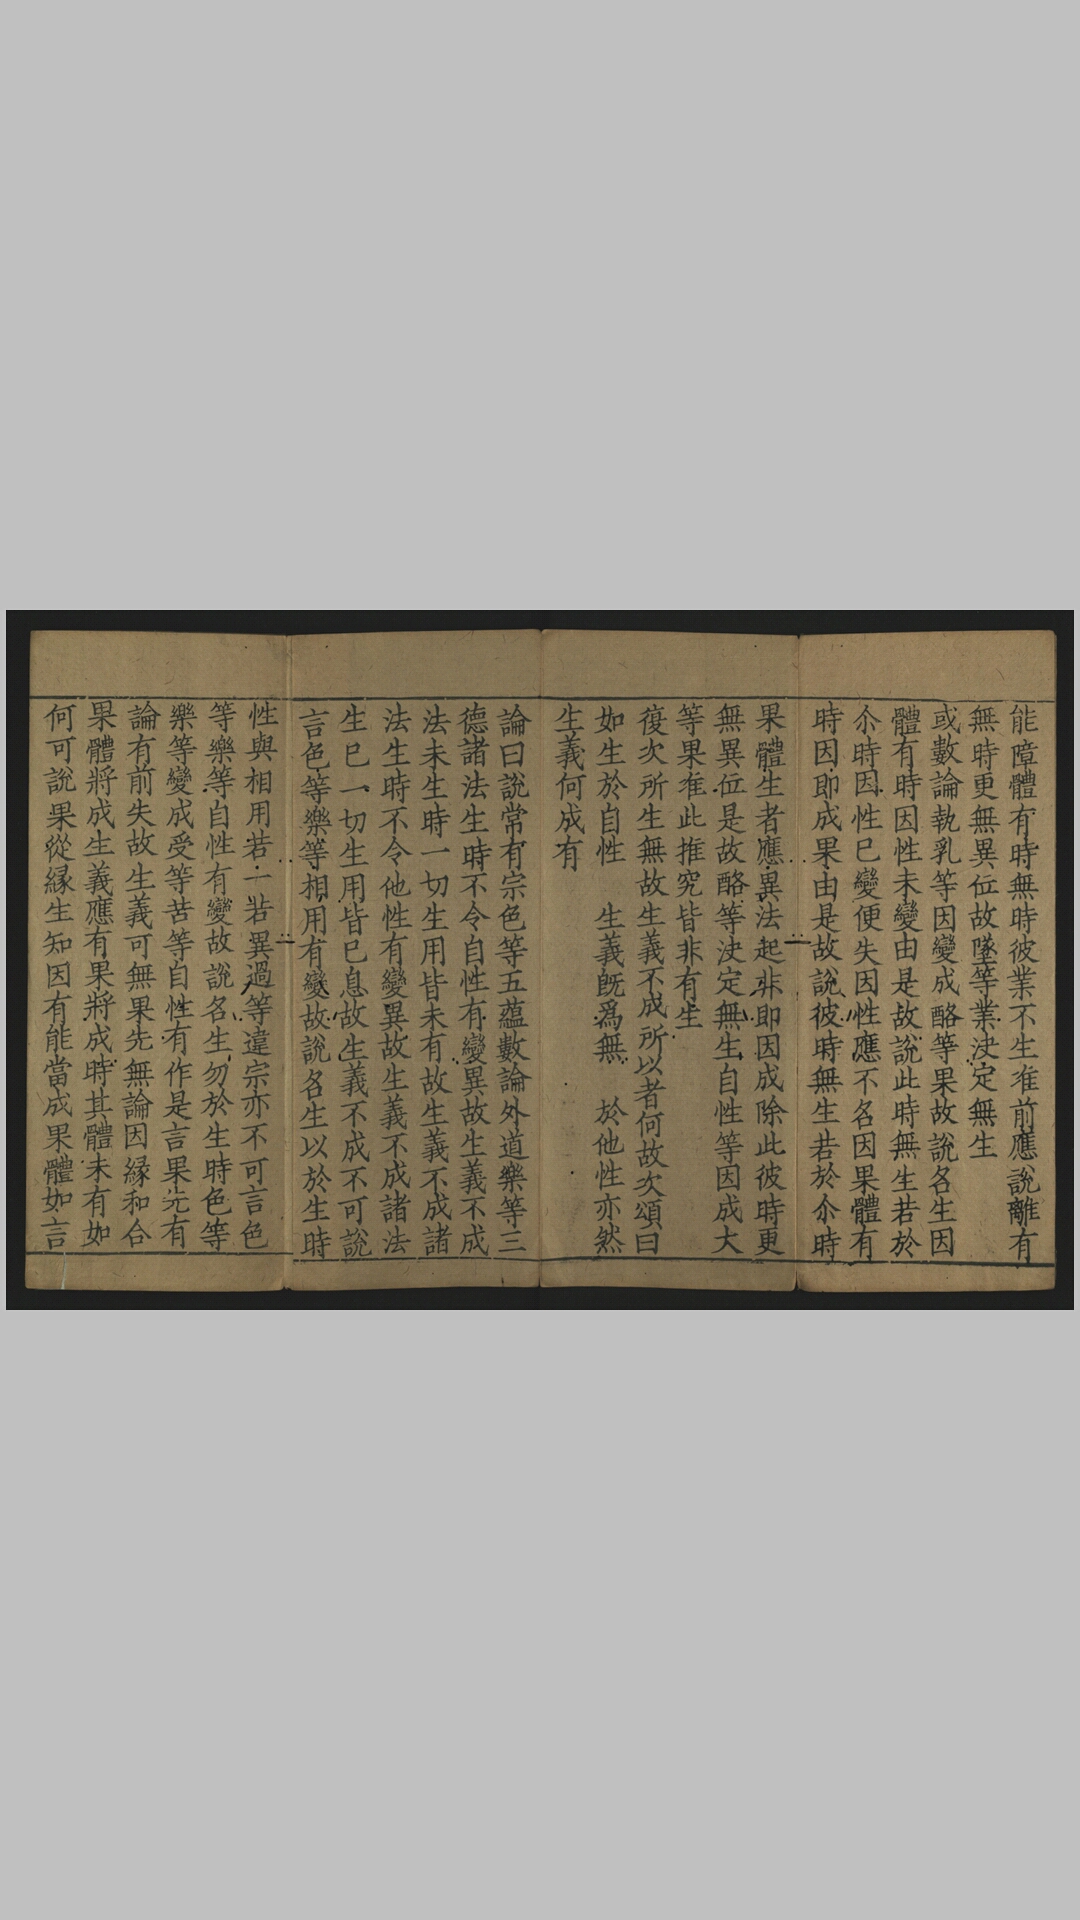 能障體有時無時彼業不生准前應說離有
無時更無異位故墜等業決定無生
或數論執乳等因變成酪等果故說名生因
體有時因性未變由是故說此時無生若於
尒時因性已變便失因性應不名因果體有
時因即成果由是故說彼時無生若於尒時
果體生者應異法起非即因成除此彼時更
無異位是故酪等決定無生自性等因成大
等果准此推究皆非有生
復次所生無故生義不成所以者何故次頌曰
如生於自性　生義既爲無　於他性亦然
生義何成有
論曰說常有宗色等五蘊數論外道樂等三
德諸法生時不令自性有變異故生義不成
法未生時一切生用皆未有故生義不成諸
法生時不令他性有變異故生義不成諸法
生已一切生用皆已息故生義不成不可說
言色等樂等相用有變故說名生以於生時
性與相用若一若異過等違宗亦不可言色
等樂等自性有變故說名生勿於生時色等
樂等變成受等苦等自性有作是言果先有
論有前失故生義可無果先無論因緣和合
果體將成生義應有果將成時其體未有如
何可說果從緣生知因有能當成果體如言